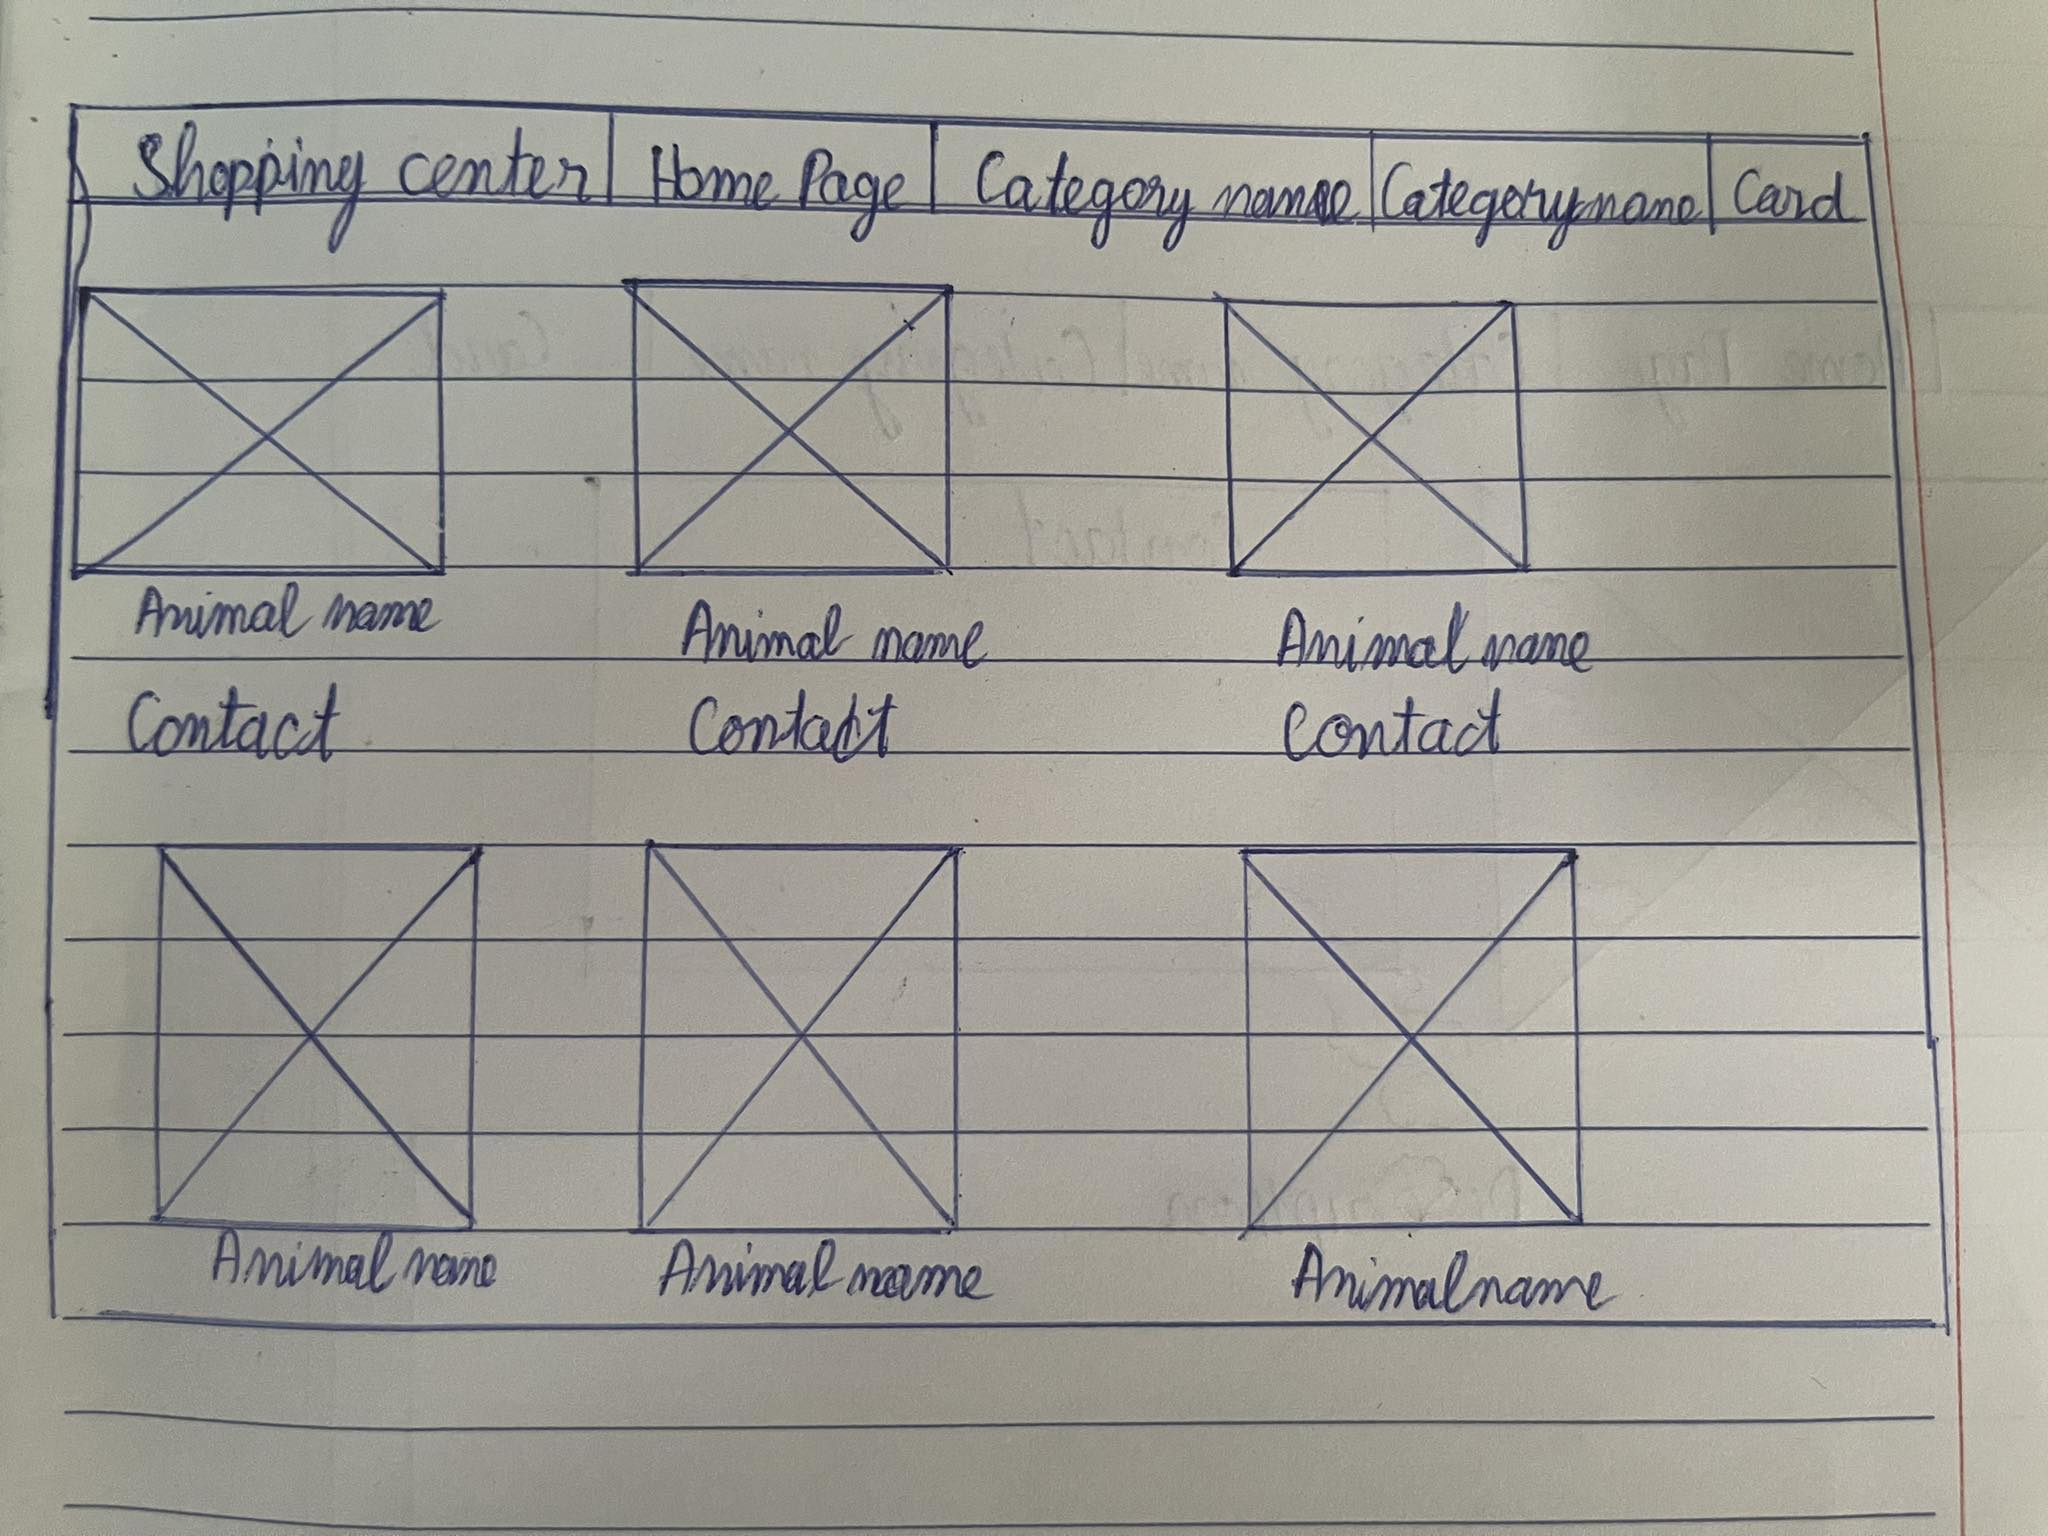 Shopping center Home Page Category name Category name Card
Animal name Animal name Animal name
Contact Contact Contact
Animal name Animal name Animal name